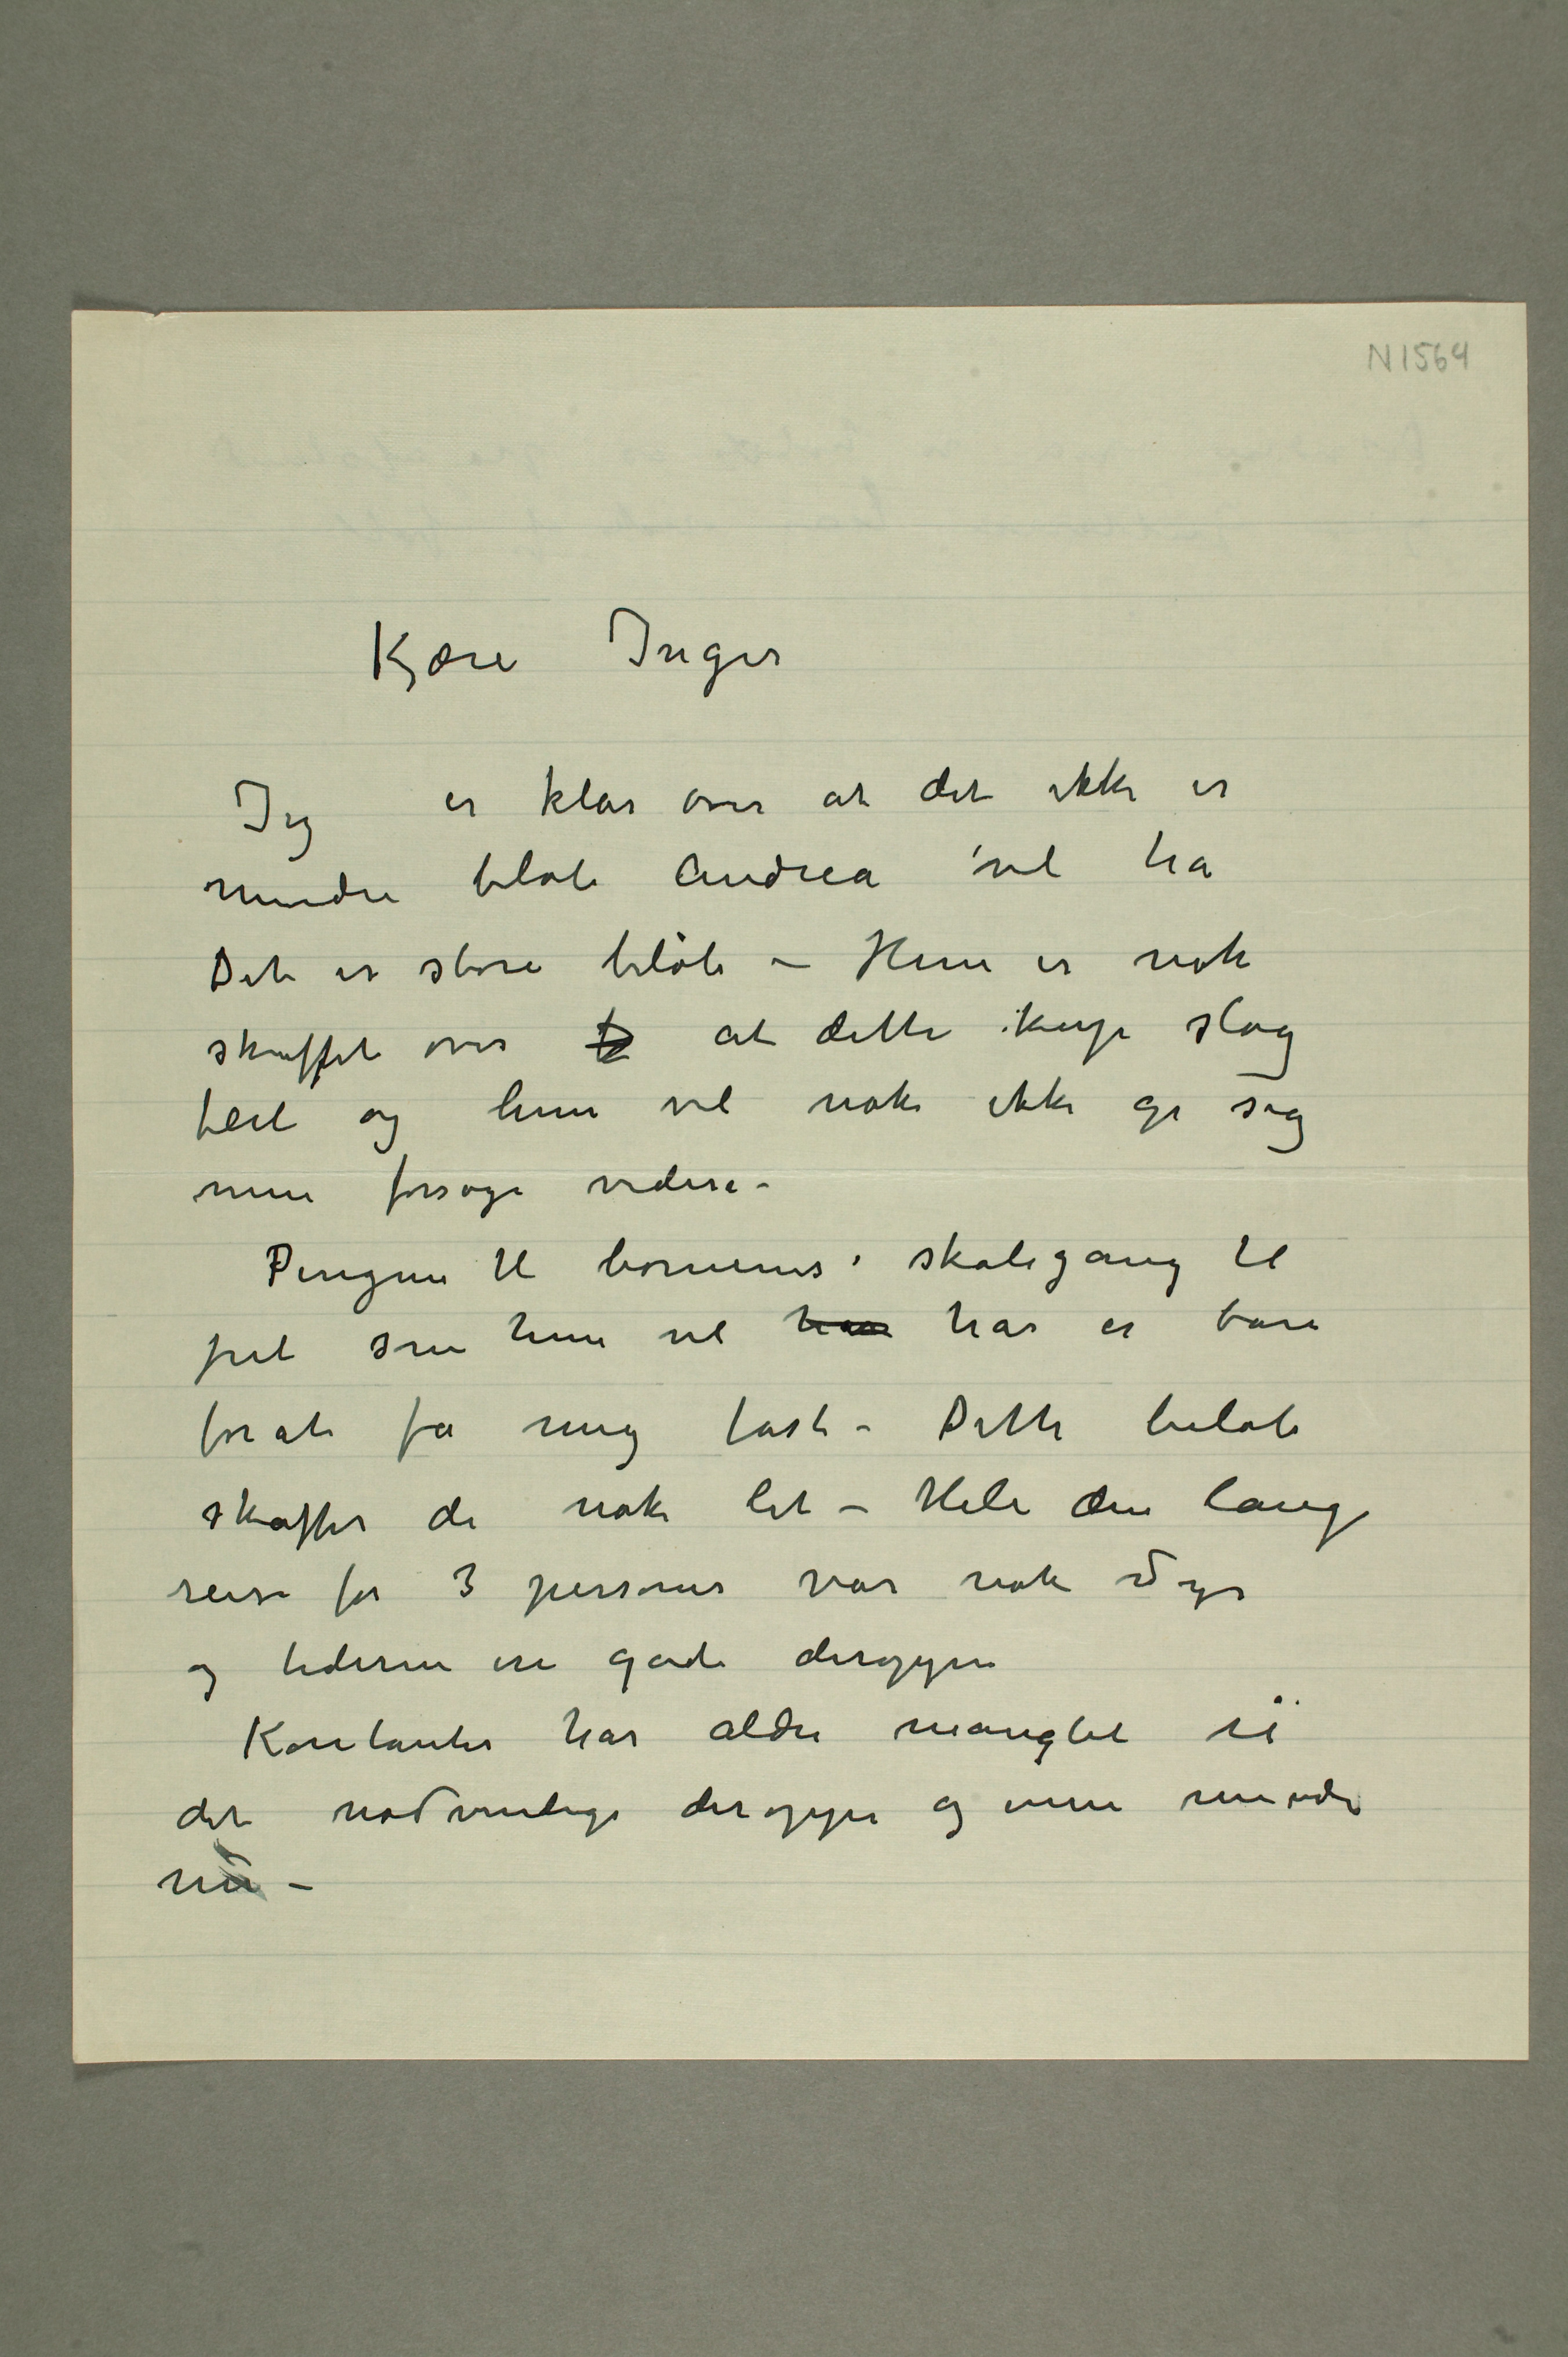 N 1564
Kjære Inger
Jeg er klar over at det ikke er
mindre beløb Andrea vil ha
Det er store beløb – Hun er nok
skuffet over at dette kup slog
feil og hun vil nok ikke gi sig
men forsøge videre –
Pengene til børnenes skolegang til
som hun vil har er bare
for at få mig fast – Dette beløb
skaffer de nok let – Hele den lange
reise for 3 personer var nok dyr
og tiderne ere gode deroppe
Kontanter har aldri manglet til
det nødvendige deroppe og enn mindre
nu –